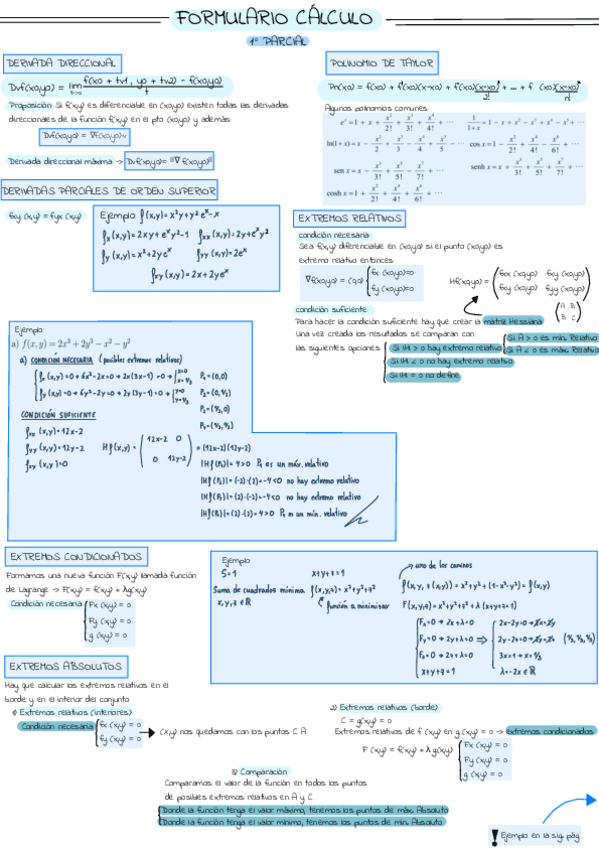 FORMULARIO CÁLCULO
1º PARCIAL
DERIVADA DIRECCIONAL
Dvf(x0,y0) = lim t→0 f(x0 + tv1, y0 + tv2) - f(x0,y0) / t
Proposición: Si f(x,y) es diferenciable en (x0,y0) existen todas las derivadas
direccionales de la función f(x,y) en el pto (x0,y0) y además
Dvf(x0,y0) = ∇f(x0,y0)·v
Derivada direccional máxima → Dvf(x0,y0)= ||∇ f(x0,y0)||
POLINOMIO DE TAYLOR
Pn(x0) = f(x0) + f'(x0)(x-x0) + f''(x0)(x-x0)²/2! + ... + f (x0)(x-x0)ⁿ/n!
Algunos polinomios comunes:
e^x = 1 + x + x²/2! + x³/3! + x⁴/4! + ⋯
1/(1+x) = 1 − x + x² − x³ + x⁴ − x⁵ + ⋯
ln(1+x) = x − x²/2 + x³/3 − x⁴/4 + x⁵/5 − ⋯
cos x = 1 − x²/2! + x⁴/4! − x⁶/6! + ⋯
sen x = x − x³/3! + x⁵/5! − x⁷/7! + ⋯
senh x = x + x³/3! + x⁵/5! + x⁷/7! + ⋯
cosh x = 1 + x²/2! + x⁴/4! + x⁶/6! + ⋯
DERIVADAS PARCIALES DE ORDEN SUPERIOR
fxy (x,y) = fyx (x,y)
Ejemplo f(x,y) = x²y + y² e^x - x
fx (x,y) = 2xy + e^x y² - 1 fxx (x,y) = 2y + e^x y²
fy (x,y) = x² + 2y e^x fyy (x,y) = 2e^x
fxy (x,y) = 2x + 2y e^x
EXTREMOS RELATIVOS
condición necesaria
Sea f(x,y) diferenciable en (x0,y0) si el punto (x0,y0) es
extremo relativo entonces:
∇f(x0,y0) = (0,0) fx (x0,y0)=0
fy (x0,y0)=0
Hf(x0,y0) = fxx (x0,y0) fxy (x0,y0)
fxy (x0,y0) fyy (x0,y0)
A B
B C
condición suficiente
Para hacer la condición suficiente hay que crear la matriz Hessiana
Una vez creada los resultados se comparan con
las siguientes opciones:
Si |H| > 0 hay extremo relativo
Si A > 0 es mín. Relativo
Si A < 0 es máx. Relativo
Si |H| < 0 no hay extremo relativo
Si |H| = 0 no define
Ejemplo:
a) f(x, y) = 2x³ + 2y³ − x² − y²
a) CONDICIÓN NECESARIA (posibles extremos relativos)
fx (x,y) = 0 → 6x² - 2x = 0 → 2x (3x-1) = 0 → x=0
x=1/3
fy (x,y) = 0 → 6y² - 2y = 0 → 2y (3y-1) = 0 → y=0
y=1/3
P1 = (0,0)
P2 = (0,1/3)
P3 = (1/3,0)
P4 = (1/3,1/3)
CONDICIÓN SUFICIENTE
fxx (x,y) = 12x-2
fyy (x,y) = 12y-2
fxy (x,y) = 0
Hf(x,y) = 12x-2 0
0 12y-2
= (12x-2)(12y-2)
|Hf(P1)| = 4 > 0 P1 es un máx. relativo
|Hf(P2)| = (-2)·(2) = -4 < 0 no hay extremo relativo
|Hf(P3)| = (2)·(-2) = -4 < 0 no hay extremo relativo
|Hf(P4)| = (2)·(2) = 4 > 0 P4 es un mín. relativo
EXTREMOS CONDICIONADOS
Formamos una nueva función F(x,y) llamada función
de Lagrange → F(x,y) = f(x,y) + λg(x,y)
Condición necesaria Fx (x,y) = 0
Fy (x,y) = 0
g (x,y) = 0
Ejemplo
S=1 x+y+z=1
Suma de cuadrados mínima f(x,y,z) = x²+y²+z²
x,y,z ∈ ℝ
función a minimizar
uno de los caminos
f(x,y, z(x,y)) = x²+y² + (1-x-y)² = f(x,y)
F(x,y,z) = x²+y²+z² + λ(x+y+z-1)
Fx = 0 → 2x+λ = 0
Fy = 0 → 2y+λ = 0
Fz = 0 → 2z+λ = 0
x+y+z = 1
2x-2y=0 → x=y
2y-2z=0 → y=z
3x=1 → x=1/3
λ=-2x ∈ ℝ
(1/3,1/3,1/3)
EXTREMOS ABSOLUTOS
Hay que calcular los extremos relativos en el
borde y en el interior del conjunto
1) Extremos relativos (interiores)
Condición necesaria fx (x,y) = 0
fy (x,y) = 0
(x,y) nos quedamos con los puntos C A
2) Extremos relativos (borde)
C = g(x,y) = 0
Extremos relativos de f (x,y) en g (x,y) = 0 → extremos condicionados
F (x,y) = f(x,y) + λ g(x,y)
Fx (x,y) = 0
Fy (x,y) = 0
g (x,y) = 0
3) Comparación
Comparamos el valor de la función en todos los puntos
de posibles extremos relativos en A y C
Donde la función tenga el valor máximo, tenemos los puntos de máx. Absoluto
Donde la función tenga el valor mínimo, tenemos los puntos de mín. Absoluto
! Ejemplo en la sig. pág